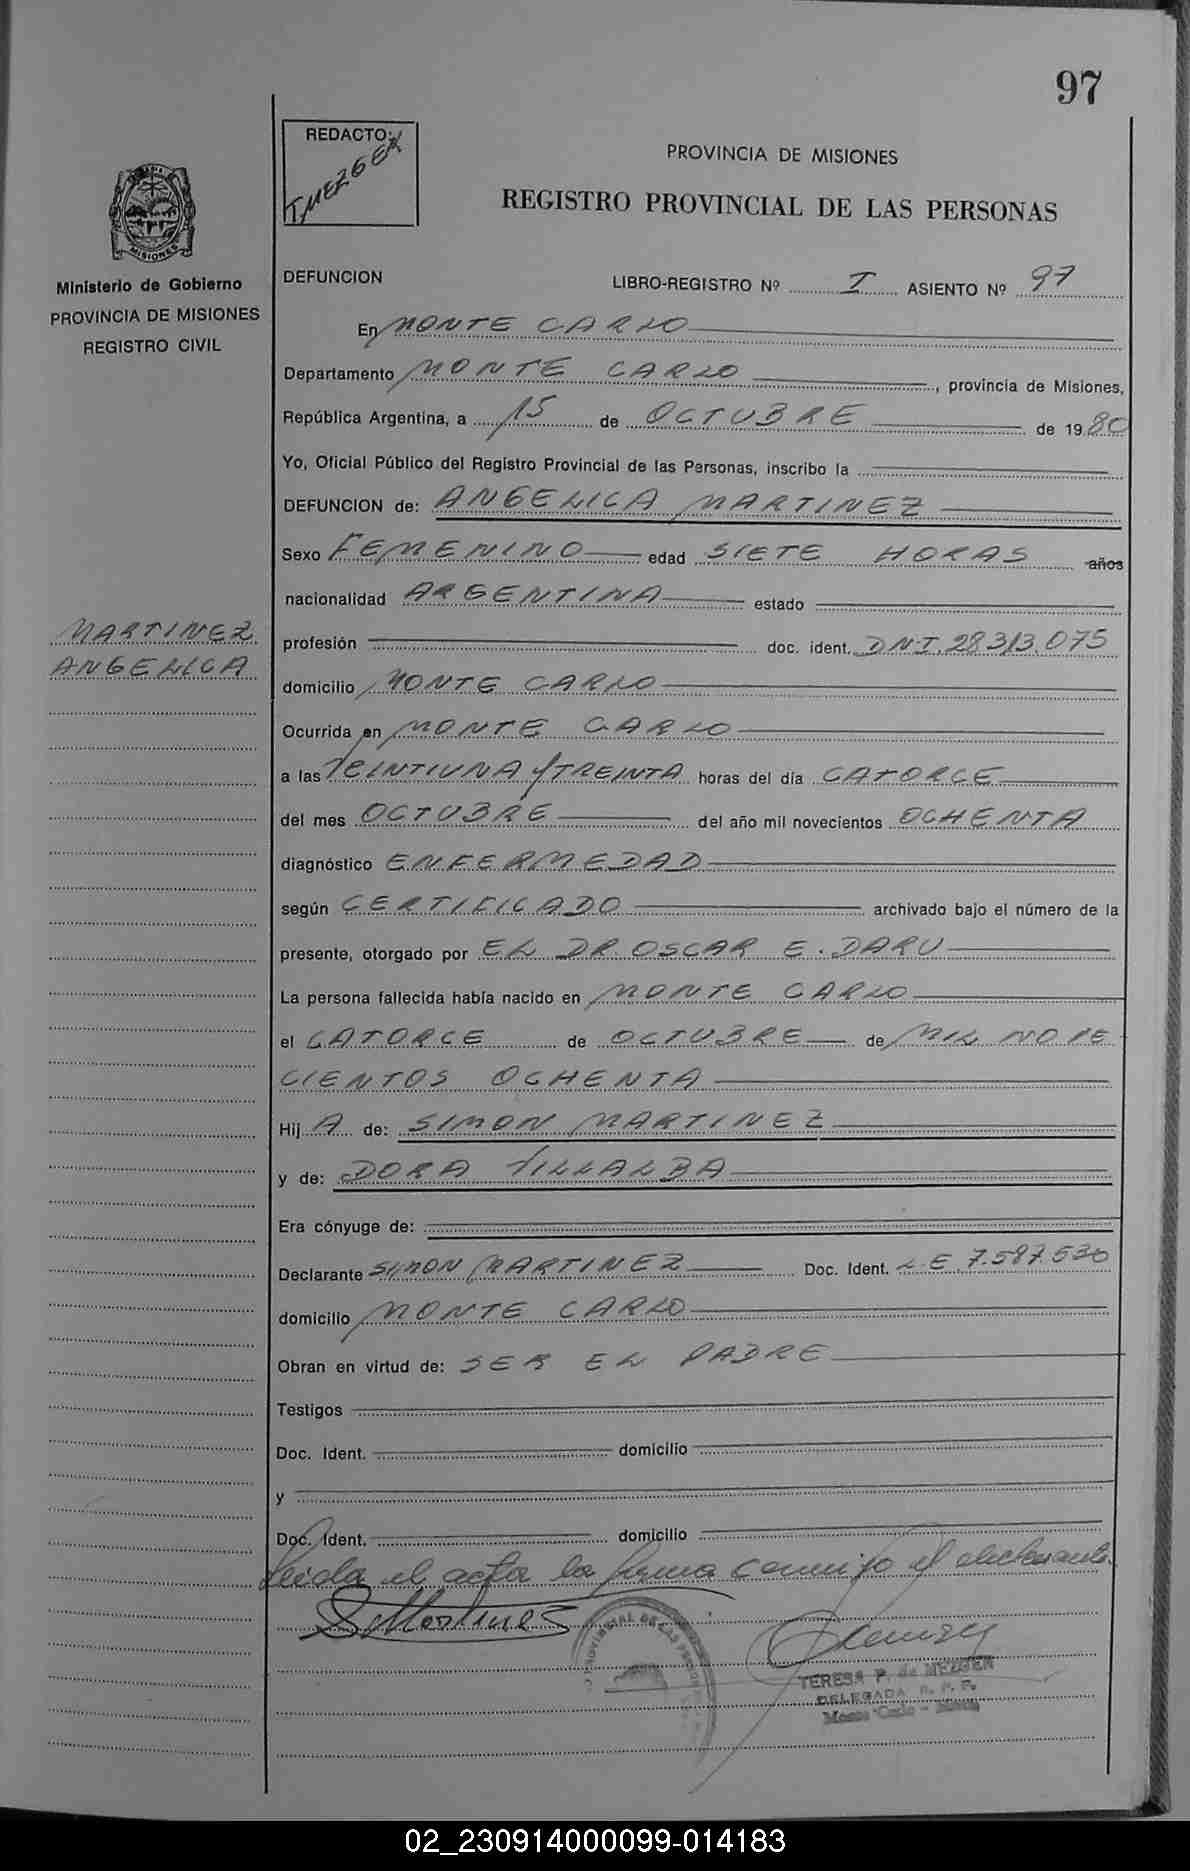 97
REDACTO:
T. MEZGER
PROVINCIA DE MISIONES
REGISTRO PROVINCIAL DE LAS PERSONAS
MISIONES
Ministerio de Gobierno
PROVINCIA DE MISIONES
REGISTRO CIVIL
DEFUNCION LIBRO-REGISTRO Nº I ASIENTO Nº 97
En MONTE CARLO
Departamento MONTE CARLO, provincia de Misiones,
República Argentina, a 15 de OCTUBRE de 1980
Yo, Oficial Público del Registro Provincial de las Personas, inscribo la
DEFUNCION de: ANGELICA MARTINEZ
Sexo FEMENINO edad SIETE HORAS años
nacionalidad ARGENTINA estado
MARTINEZ
ANGELICA
profesión doc. ident. DNI. 28.313.075
domicilio MONTE CARLO
Ocurrida en MONTE CARLO
a las VEINTIUNA Y TREINTA horas del día CATORCE
del mes OCTUBRE del año mil novecientos OCHENTA
diagnóstico ENFERMEDAD
según CERTIFICADO archivado bajo el número de la
presente, otorgado por EL DR. OSCAR E. DARU
La persona fallecida había nacido en MONTE CARLO
el CATORCE de OCTUBRE de MIL NOVE
CIENTOS OCHENTA
Hij A de: SIMON MARTINEZ
y de: DORA VILLALBA
Era cónyuge de:
Declarante SIMON MARTINEZ Doc. Ident. L.E. 7.587.530
domicilio MONTE CARLO
Obran en virtud de: SER EL PADRE
Testigos
Doc. Ident. domicilio
y
Doc. Ident. domicilio
Leida el acta la firma conmigo el declarante.
S Martinez
PROVINCIAL DE LAS PERSONAS
TERESA P. de MEZGER
DELEGADA R. P. P.
Monte Carlo - Misiones
02_230914000099-014183